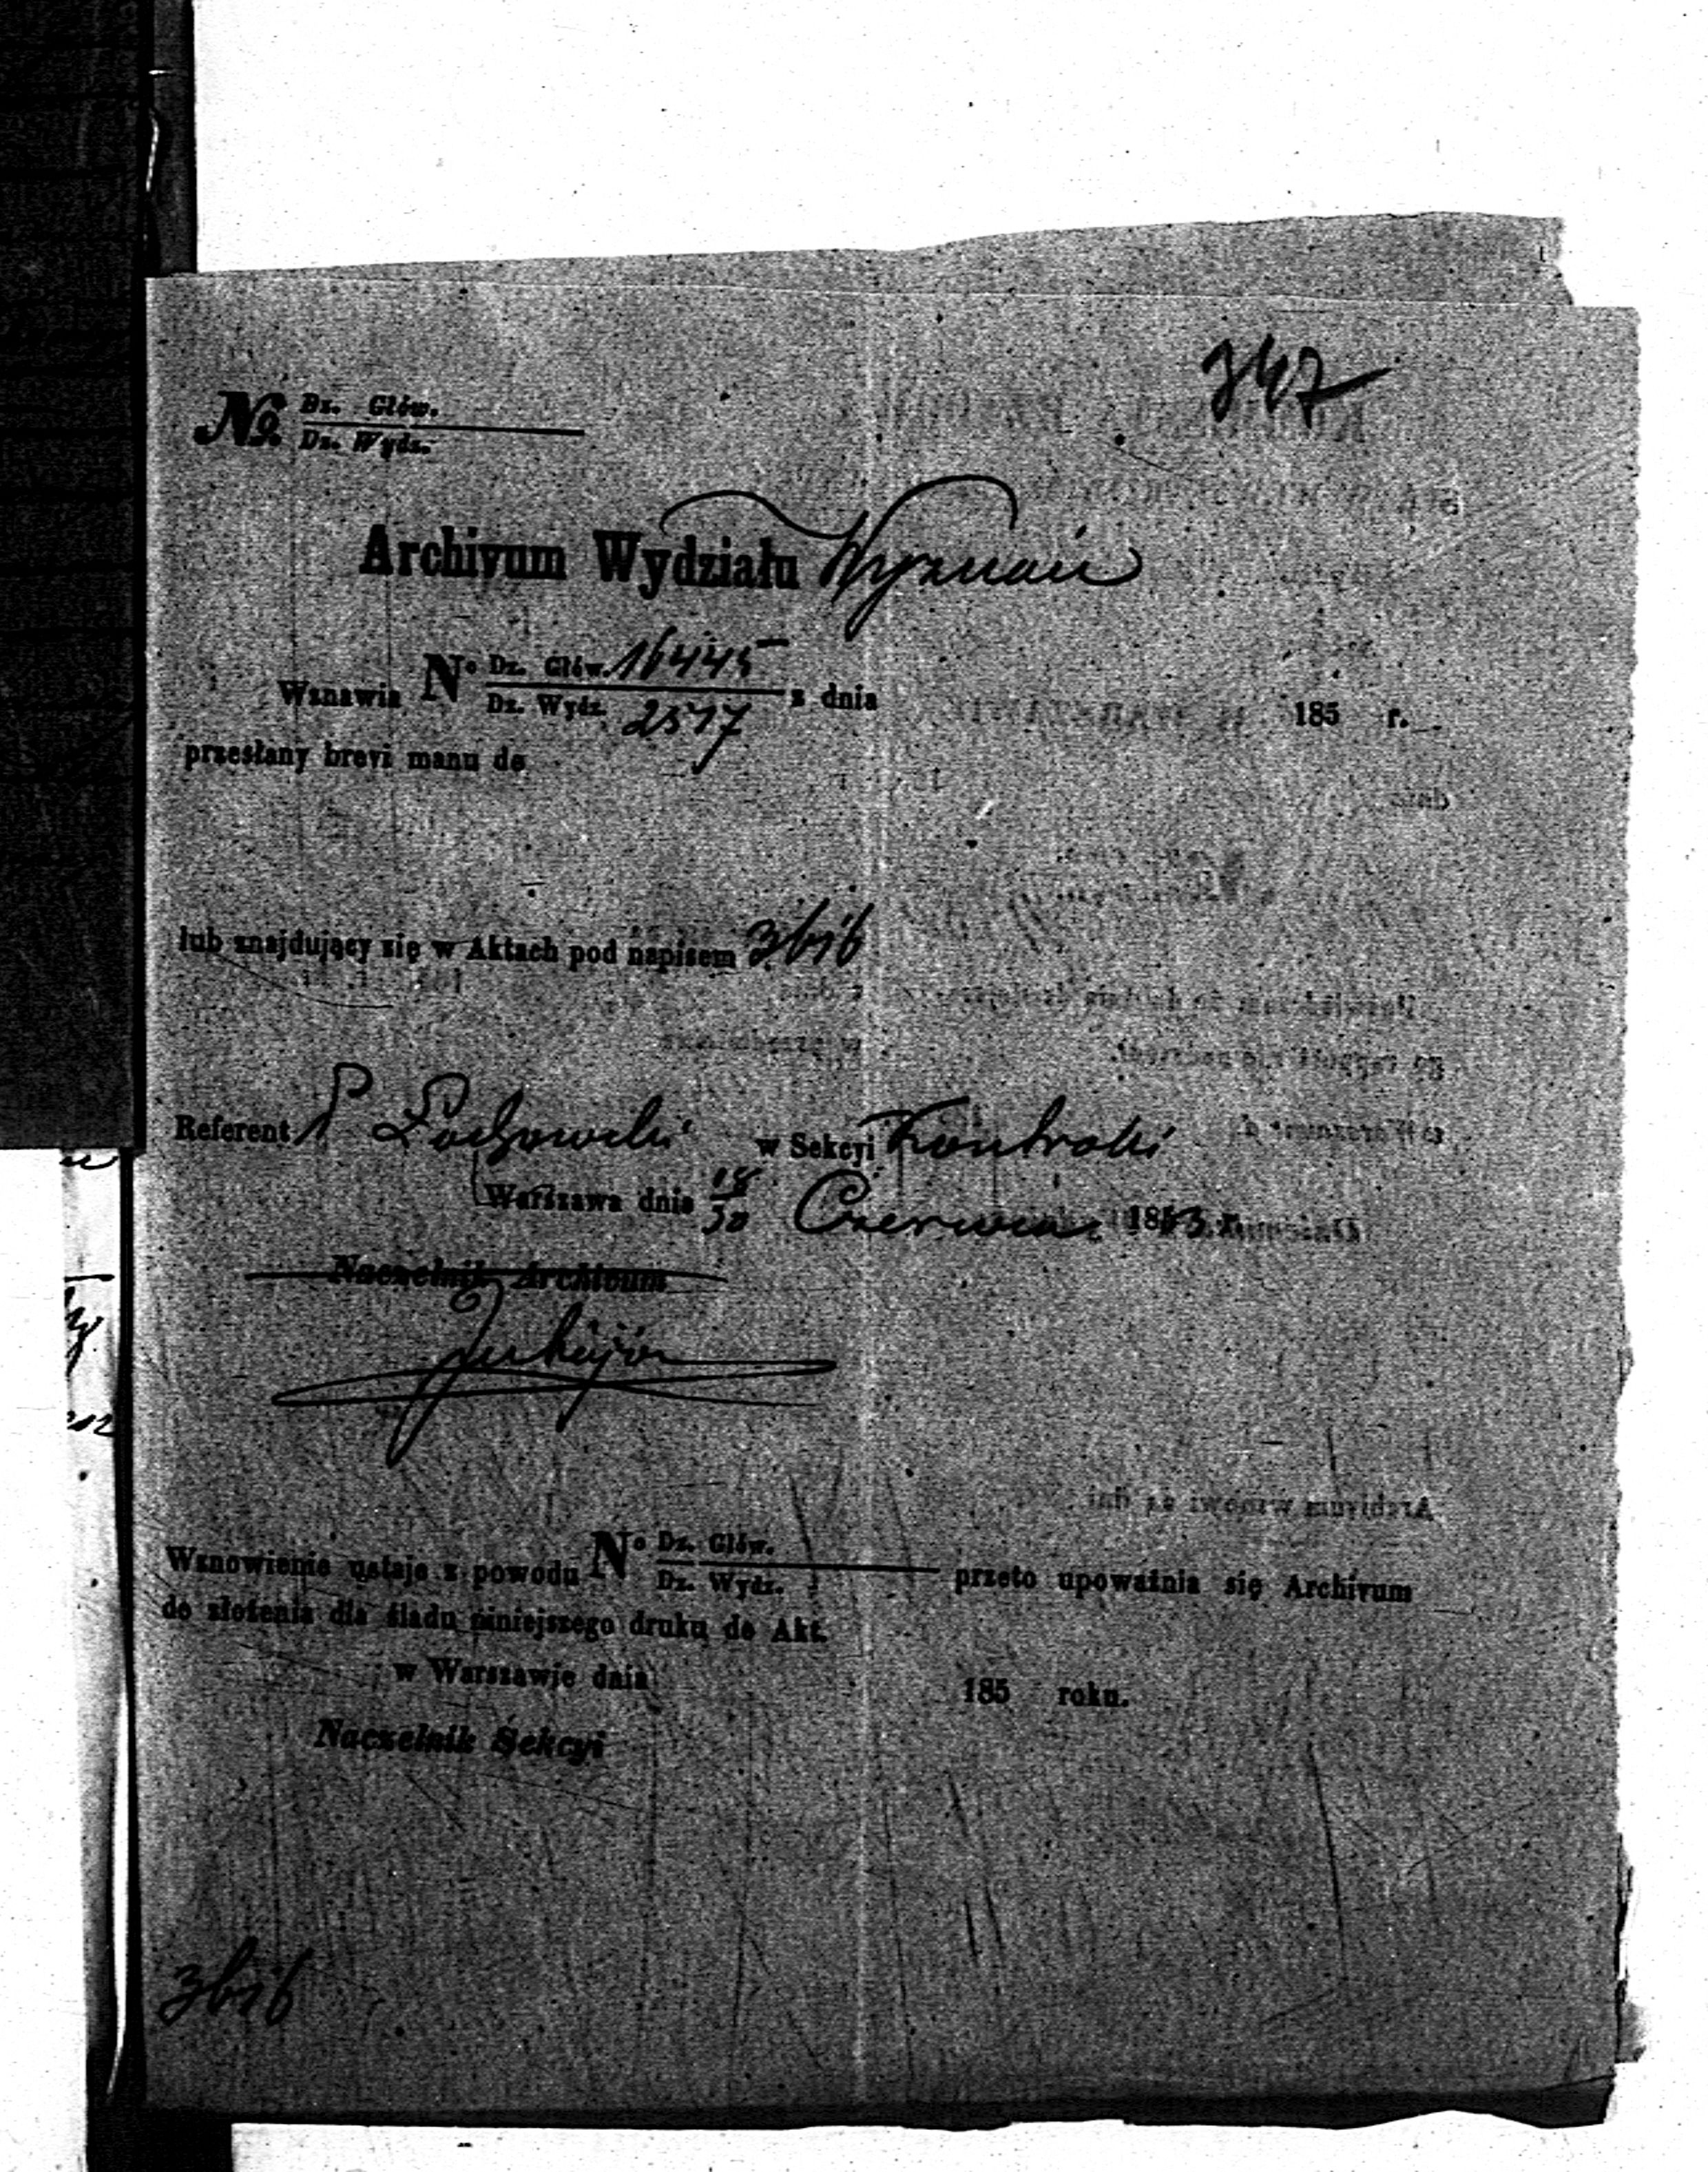 347
№ Dz. Głów.
Dz. Wydz.
Archivum Wydziału Wyznań
Wznawia N° Dz. Głów. 16445 z dnia 185 r.
Dz. Wydz. 2517
przesłany brevi manu do
lub znajdujący się w Aktach pod napisem 3616
Referent P. w Sekcyi Kontroli
Warszawa dnia 18/30 Czerwca 1853 r.
Naczelnik Archivum
Wznowienie ustaje z powodu N° Dz. Głów. przeto upoważnia się Archivum
Dz. Wydz.
do złożenia dla śladu niniejszego druku do Akt.
w Warszawie dnia 185 roku.
Naczelnik Sekcyi
3616